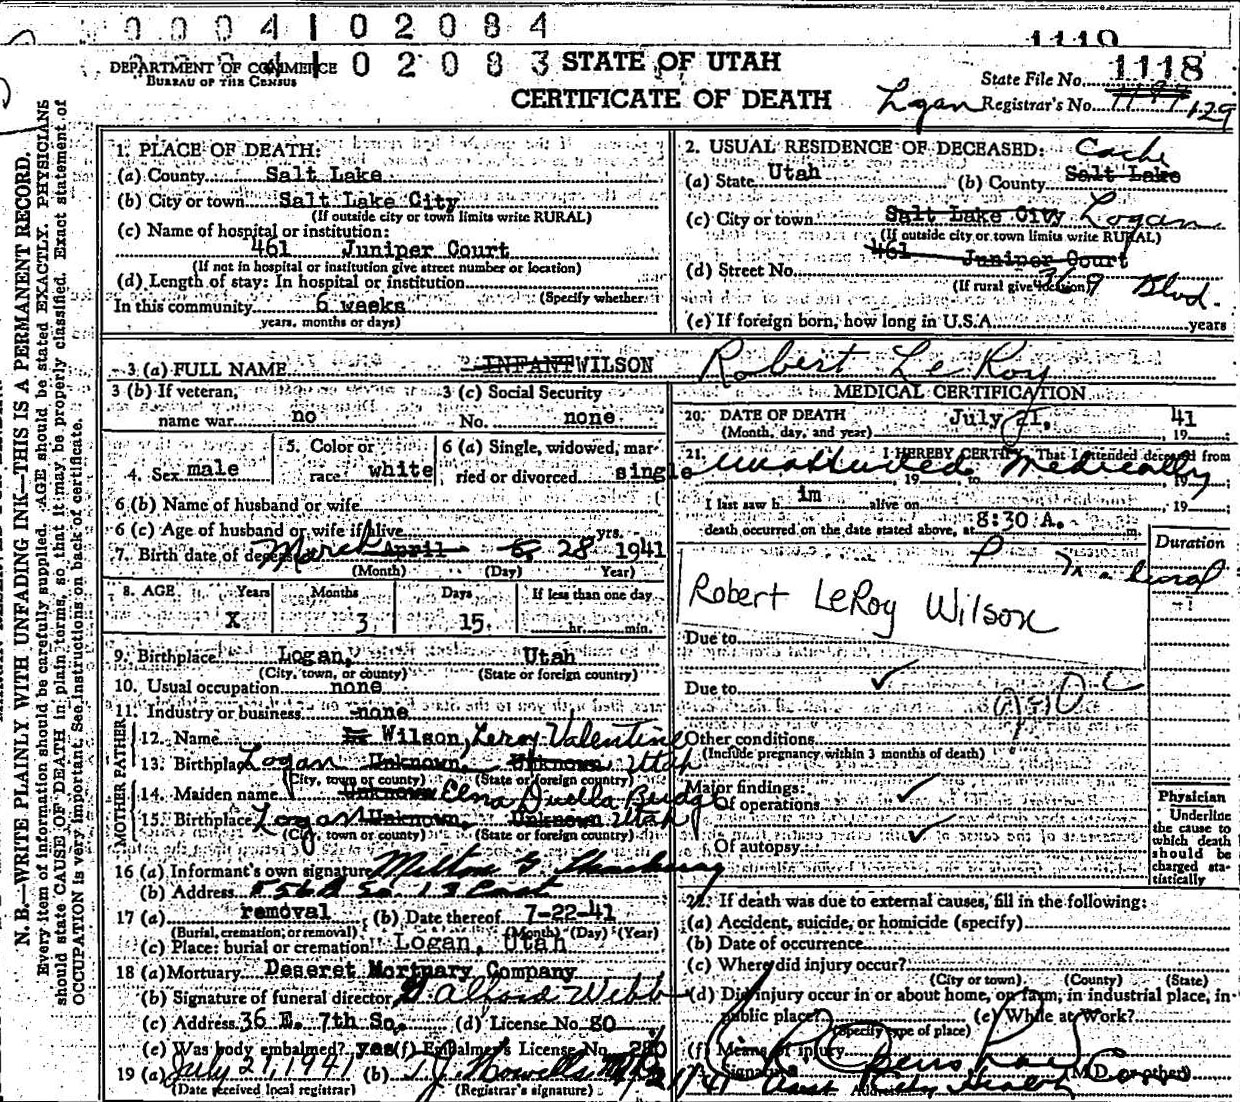 0 0 0 4 1 0 2 0 8 4
1119
DEPARTMENT OF COMMERCE 0 2 0 8 3 STATE OF UTAH
BUREAU OF THE CENSUS
State File No. 1118
CERTIFICATE OF DEATH
Logan Registrar's No. 129
N. B.—WRITE PLAINLY WITH UNFADING INK—THIS IS A PERMANENT RECORD.
Every item of information should be carefully supplied. AGE should be stated EXACTLY. PHYSICIANS
should state CAUSE OF DEATH in plain terms, so that it may be properly classified. Exact statement of
OCCUPATION is very important. See instructions on back of certificate.
1. PLACE OF DEATH:
(a) County Salt Lake
(b) City or town Salt Lake City
(If outside city or town limits write RURAL)
(c) Name of hospital or institution:
461 Juniper Court
(If not in hospital or institution give street number or location)
(d) Length of stay: In hospital or institution
(Specify whether
In this community 6 weeks
years, months or days)
2. USUAL RESIDENCE OF DECEASED: Cache
(a) State Utah (b) County Salt Lake
(c) City or town Salt Lake City Logan
(If outside city or town limits write RURAL)
461 Juniper Court
(d) Street No. Blvd.
(If rural give location)
(e) If foreign born, how long in U.S.A. years
3 (a) FULL NAME INFANT WILSON Robert LeRoy
3 (b) If veteran, 3 (c) Social Security
name war no No. none
4. Sex male 5. Color or race white 6 (a) Single, widowed, married or divorced single
6 (b) Name of husband or wife
6 (c) Age of husband or wife if alive yrs.
7. Birth date of deceased March April 6, 28 1941
(Month) (Day) Year)
8. AGE Years Months Days If less than one day
X 3 15 hr. min.
9. Birthplace Logan, Utah
(City, town, or county) (State or foreign country)
10. Usual occupation none
11. Industry or business none
FATHER
12. Name Wilson, Leroy Valentine
13. Birthplace Logan Unknown, Unknown Utah
(City, town or county) (State or foreign country)
MOTHER
14. Maiden name Unknown Elna Duella Budge
15. Birthplace Logan Unknown, Unknown Utah
(City town or county) (State or foreign country)
16 (a) Informant's own signature Milton G.
(b) Address 556 A So. 13 East
17 (a) removal (b) Date thereof 7-22-41
(Burial, cremation, or removal) (Month) (Day) (Year)
(c) Place: burial or cremation Logan, Utah
18 (a) Mortuary Deseret Mortuary Company
(b) Signature of funeral director Webb
(c) Address 36 E. 7th So. (d) License No. 80
(e) Was body embalmed? yes (f) Embalmer's License No.
19 (a) July 21, 1941 (b) T.J. Howells
(Date received local registrar) (Registrar's signature)
MEDICAL CERTIFICATION
20. DATE OF DEATH July 21, 41
(Month, day, and year) , 19
21. I HEREBY CERTIFY, That I attended deceased from
Unattended Medically
, 19 to , 19
I last saw h im alive on , 19
death occurred on the date stated above, at 8:30 A. m.
Duration
Robert LeRoy Wilson
Due to
Due to
Other conditions
(Include pregnancy within 3 months of death)
Major findings:
Of operations
Of autopsy
Physician
Underline
the cause to
which death
should be
charged sta-
tistically
22. If death was due to external causes, fill in the following:
(a) Accident, suicide, or homicide (specify)
(b) Date of occurrence
(c) Where did injury occur?
(City or town) (County) (State)
(d) Did injury occur in or about home, on farm, in industrial place, in
public place? (e) While at Work?
(Specify type of place)
(f) Means of injury
Signature (M.D. or other)
Address